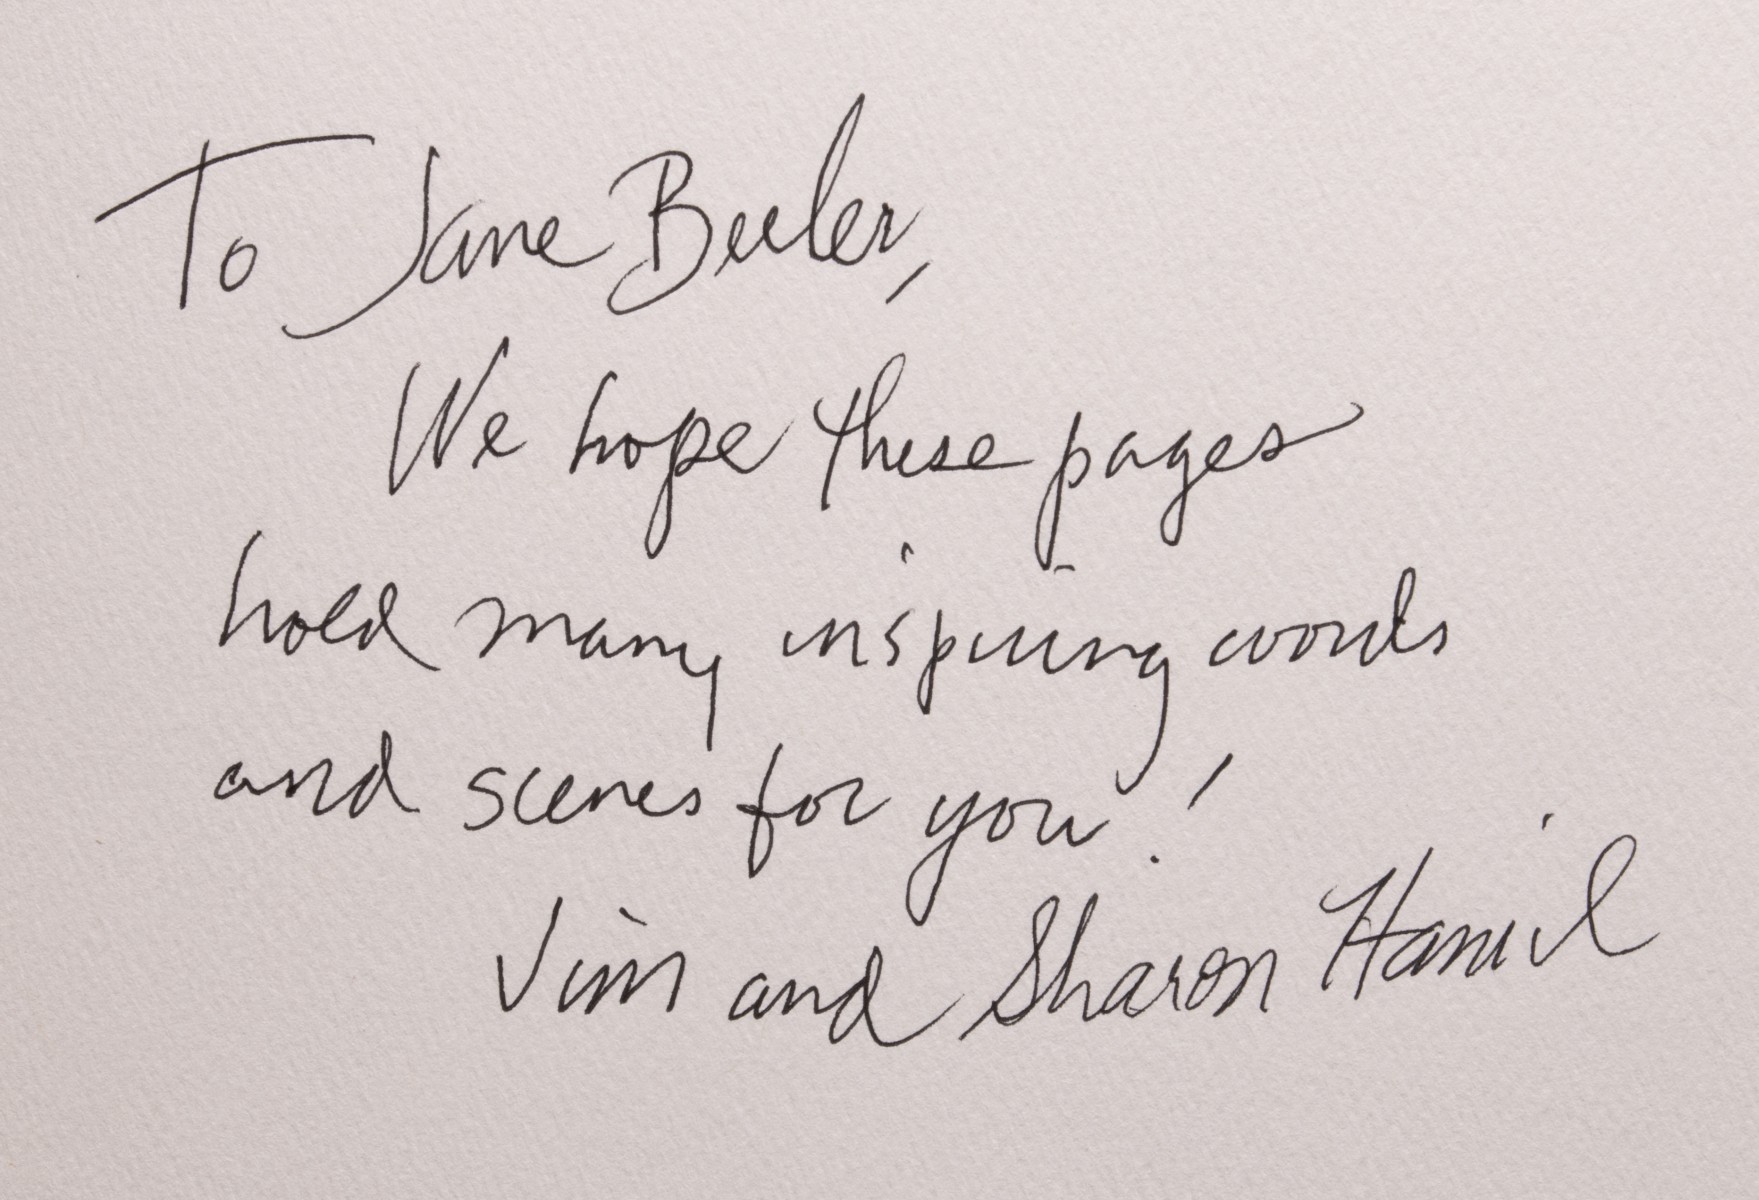 To Jane Beeler,
We hope these pages
hold many inspiring words
and scenes for you!
Jim and Sharon Hamil